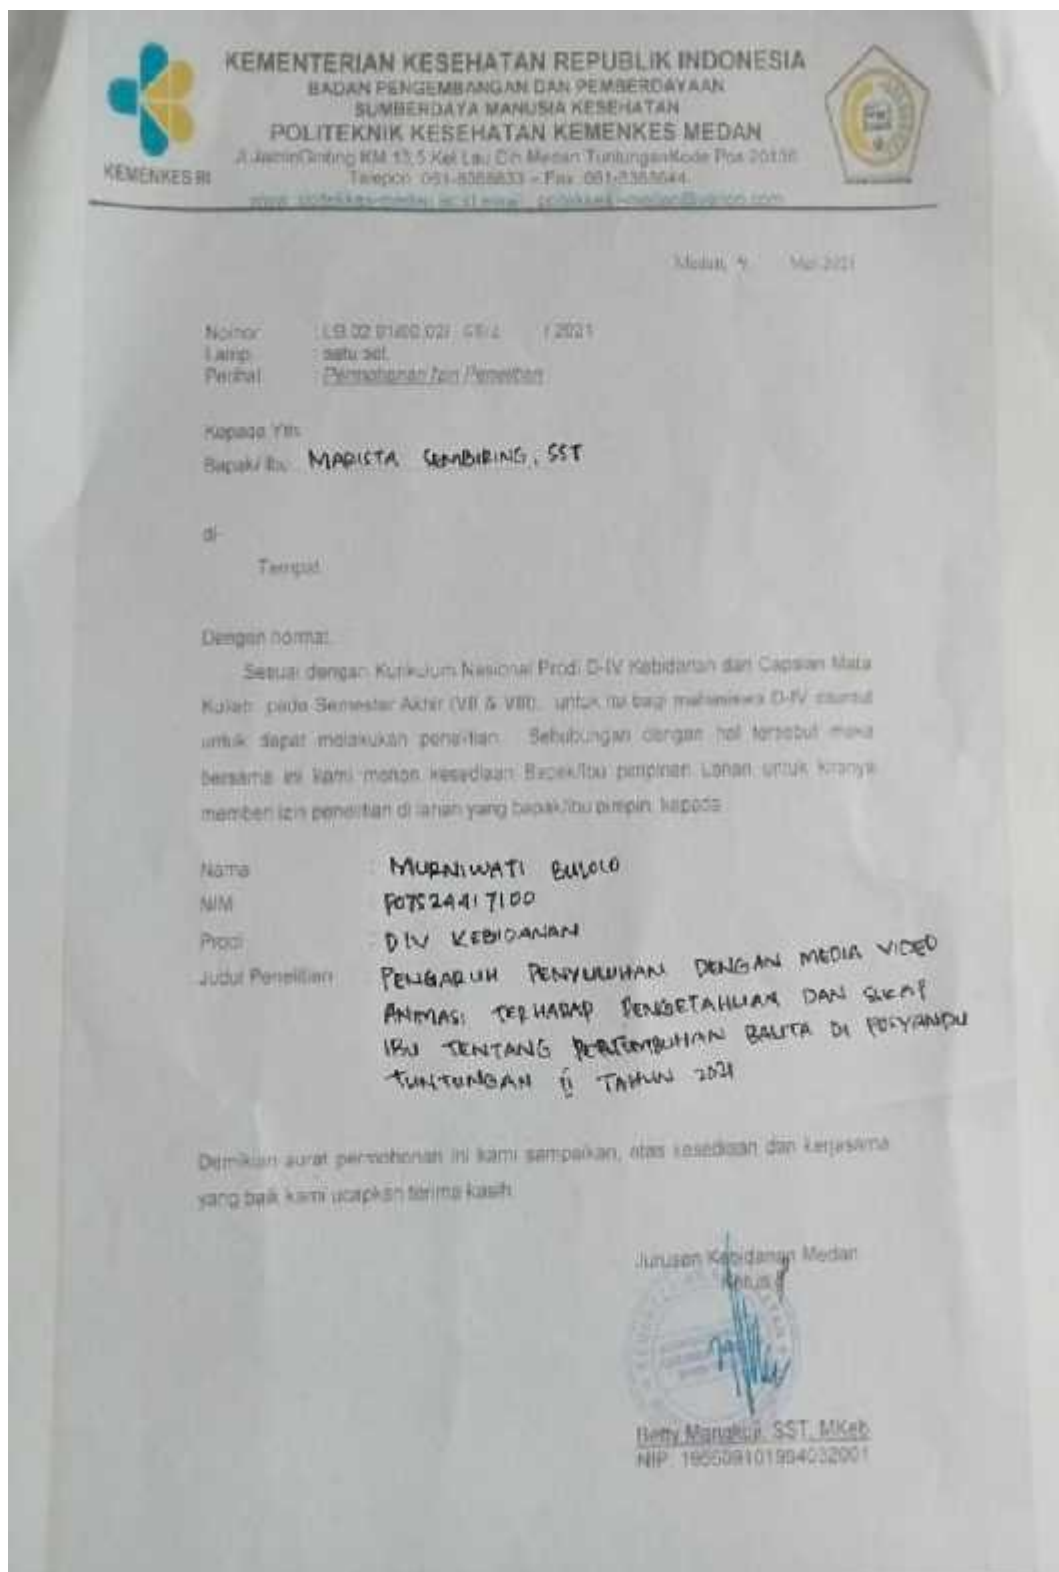 KEMENTERIAN KESEHATAN REPUBLIK INDONESIA
BADAN PENGEMBANGAN DAN PEMBERDAYAAN
SUMBERDAYA MANUSIA KESEHATAN
POLITEKNIK KESEHATAN KEMENKES MEDAN
KM 13,5 Kel Lau Cih Medan Kode Pos
KEMENKES RI
Medan, Mei 2021
Nomor : / 2021
Lamp : satu set
Perihal : Permohonan Izin Penelitian
Kepada Yth
Bapak/ Ibu MARISTA SEMBIRING, SST
di-
Tempat
Dengan hormat,
Sesuai dengan Kurikulum Nasional Prodi D-IV Kebidanan dan Capaian Mata
Kuliah pada Semester Akhir (VII & VIII), untuk itu bagi mahasiswa D-IV dituntut
untuk dapat melakukan penelitian. Sehubungan dengan hal tersebut maka
bersama ini kami mohon kesediaan Bapak/Ibu pimpinan Lahan untuk kiranya
memberi izin penelitian di lahan yang bapak/ibu pimpin, kepada
Nama : MURNIWATI BULOLO
NIM P07524417100
Prodi DIV KEBIDANAN
Judul Penelitian PENGARUH PENYULUHAN DENGAN MEDIA VIDEO
ANIMASI TERHADAP PENGETAHUAN DAN SIKAP
IBU TENTANG PERTUMBUHAN BALITA DI POSYANDU
TUNTUNGAN II TAHUN 2021
Demikian surat permohonan ini kami sampaikan, atas kesediaan dan kerjasama
yang baik kami ucapkan terima kasih
Jurusan Kebidanan Medan
Ketua
Betty Mangkuji, SST, MKeb
NIP.